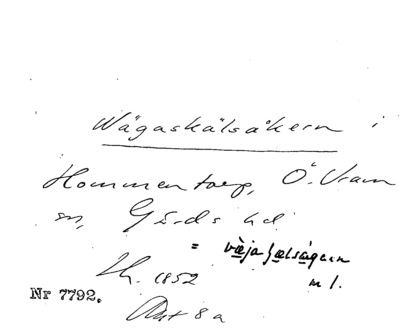 Wägaskälsåkern i
Hommentorp, Ö. Vram
sn, Gärds hd.
= 
Lh. 1852 m l.
Nr 7792.
Akt 8 a